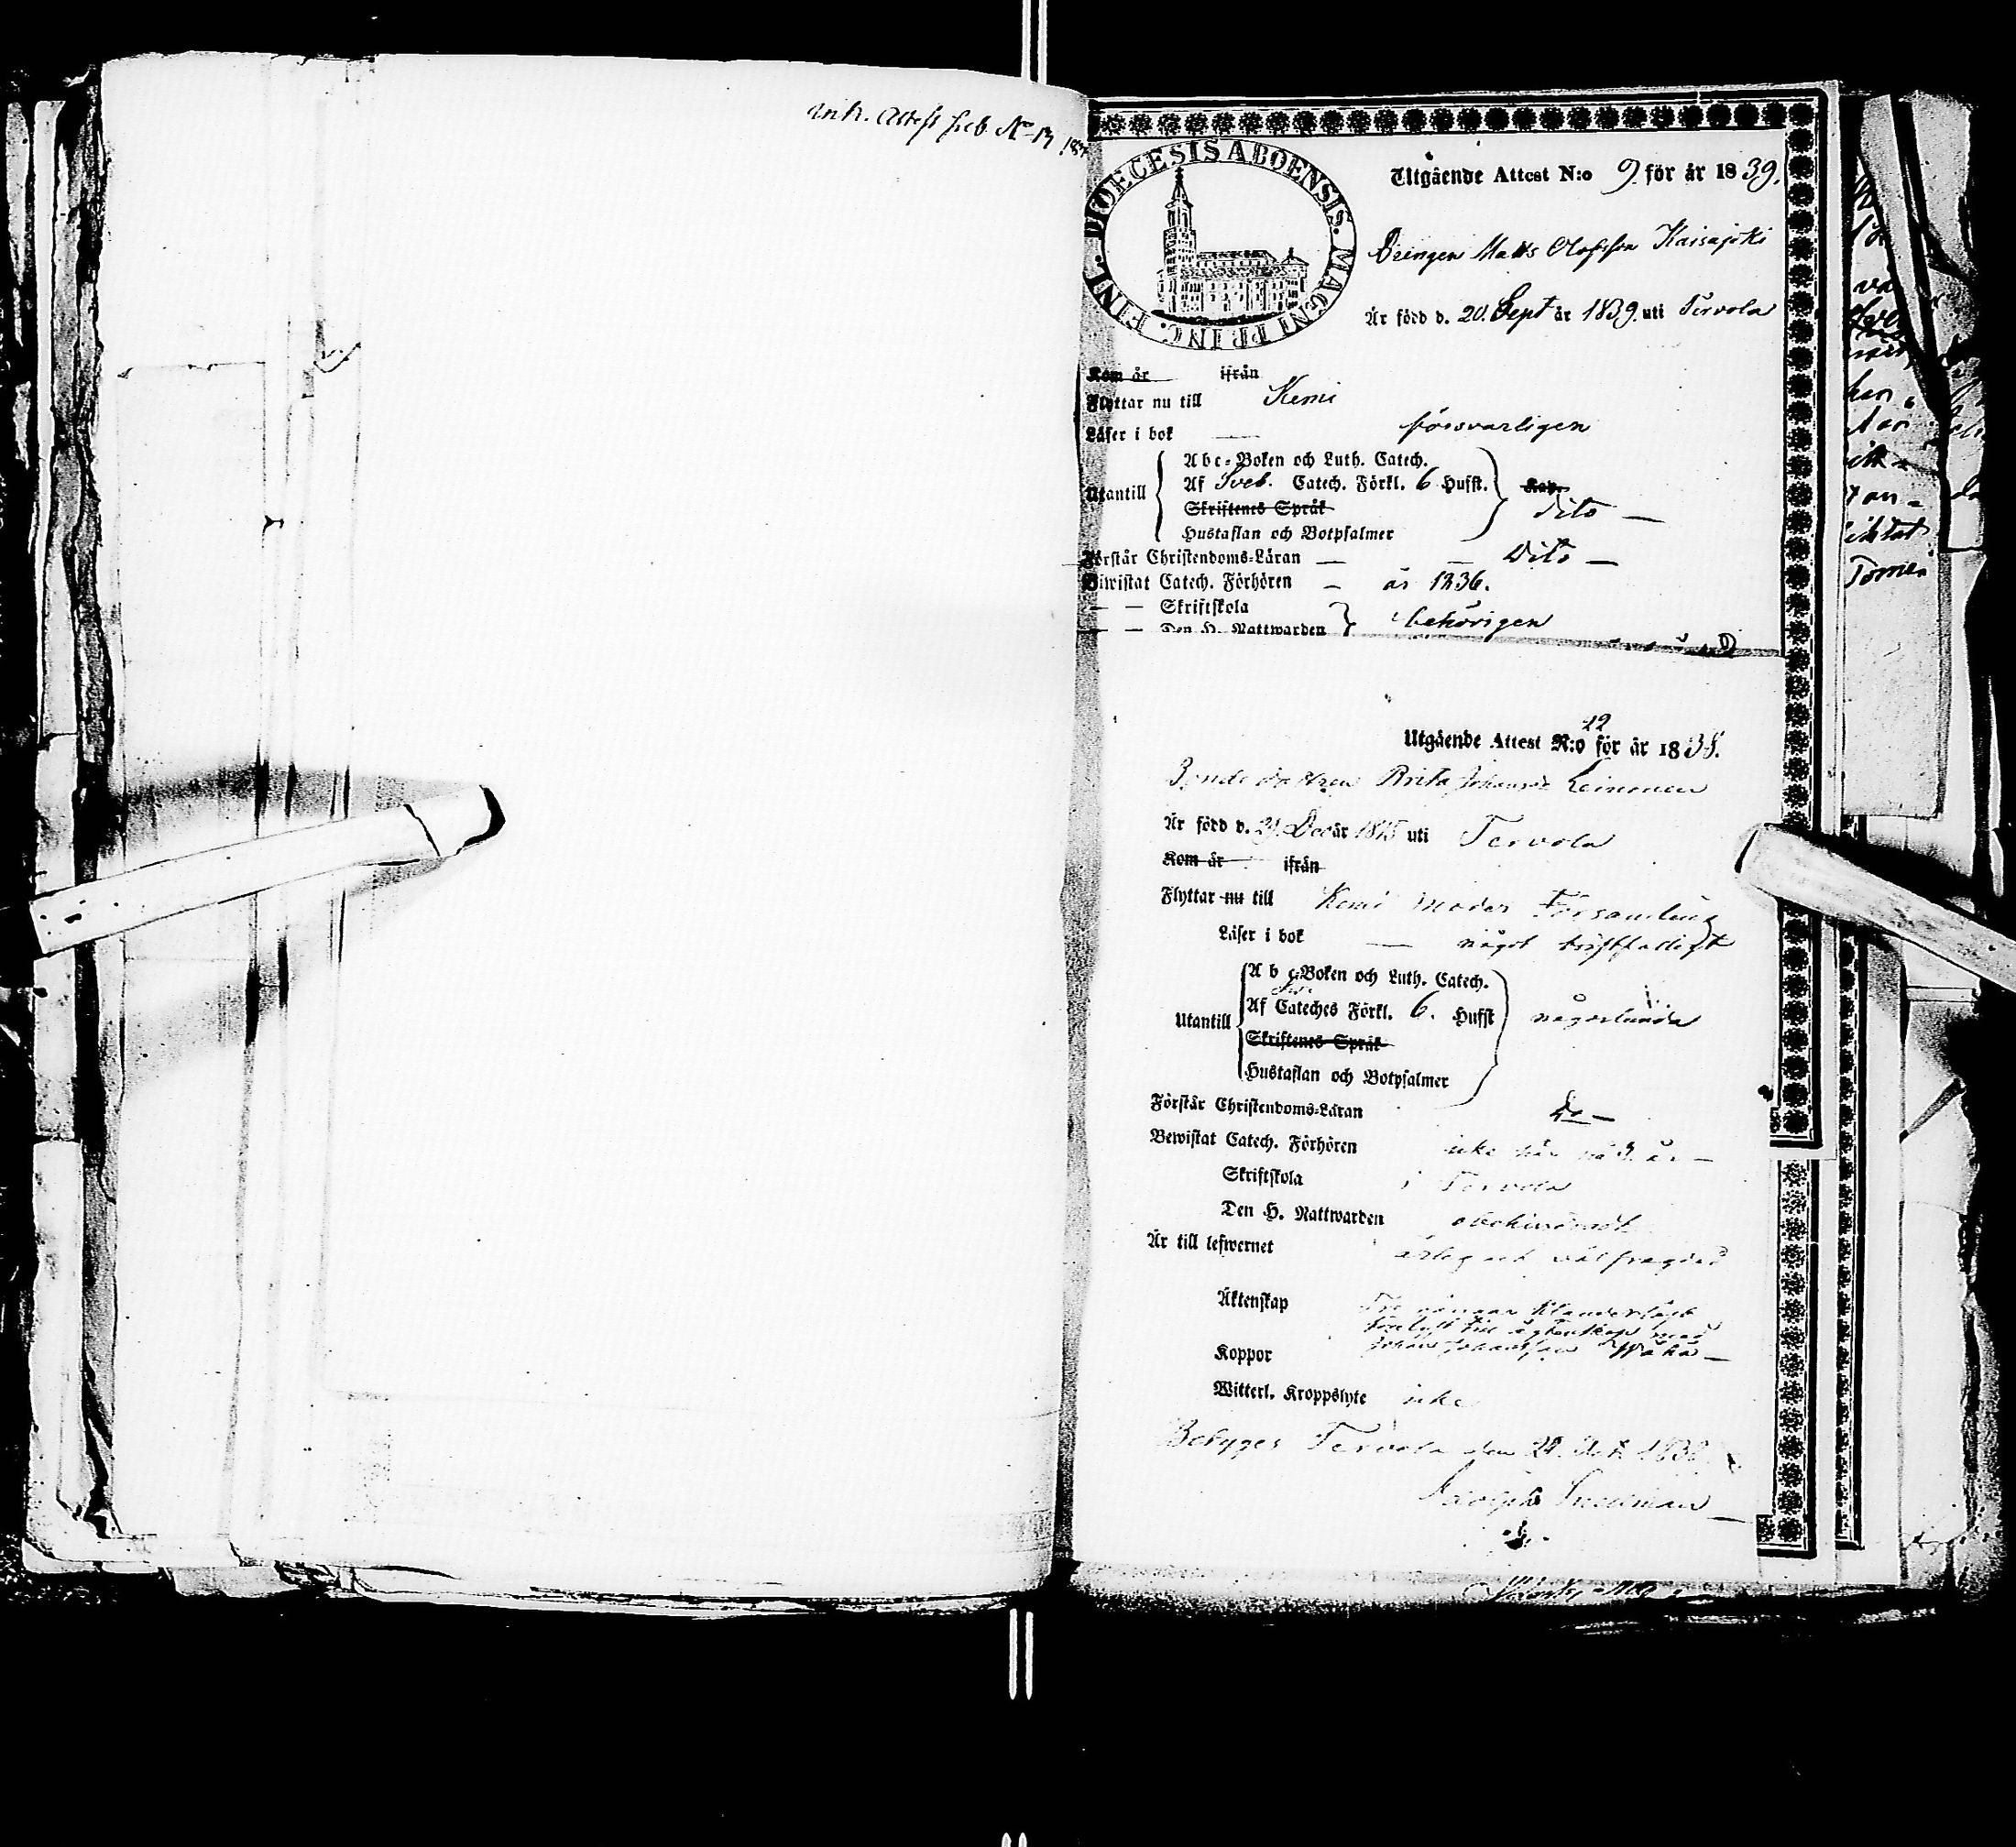 DIOECESIS ABOENSIS. MAGNI PRINC. FINL.
Utgående Attest N:o 9. för år 1839.
Drengen Matts Olofsson Kaisajoki
Är född d. 20. Sept år 1839. uti Tervola
Kom år ifrån
Flyttar nu till Kemi
Läser i bok — försvarligen
Abc-Boken och Luth. Catech.
Utantill Af Sveb. Catech. Förkl. 6 Hufst.
Skriftenes Språk dito —
Hustaflan och Botpsalmer
Förstår Christendoms-Läran — — Dito —
Biwistat Catech. Förhören — år 1836.
— — Skriftskola
— — Den H. Nattwarden behörigen
Utgående Attest N:o 12 för år 1838.
Bonde dottren Brita Johansdr Leinonen
Är född d. 21. Dec år 1815 uti Tervola
Kom år ifrån
Flyttar nu till Kemi Moder Församling
Läser i bok — något bristfälligt
A b c-Boken och Luth. Catech.
Utantill Af Cateches Förkl. 6. Hufst någorlunda
Skriftenes Språk
Hustaflan och Botpsalmer
Förstår Christendoms-Läran do —
Bewistat Catech. Förhören icke här på 3 år —
Skriftskola i Tervola
Den H. Nattwarden obehindradt
Är till lefwernet ärlig och väl frägdad
Äktenskap
till ägtenskap med
Koppor Johan Johansson
Witterl. Kroppslyte icke
Betyges Tervola den 1838.
Adolph Snellman